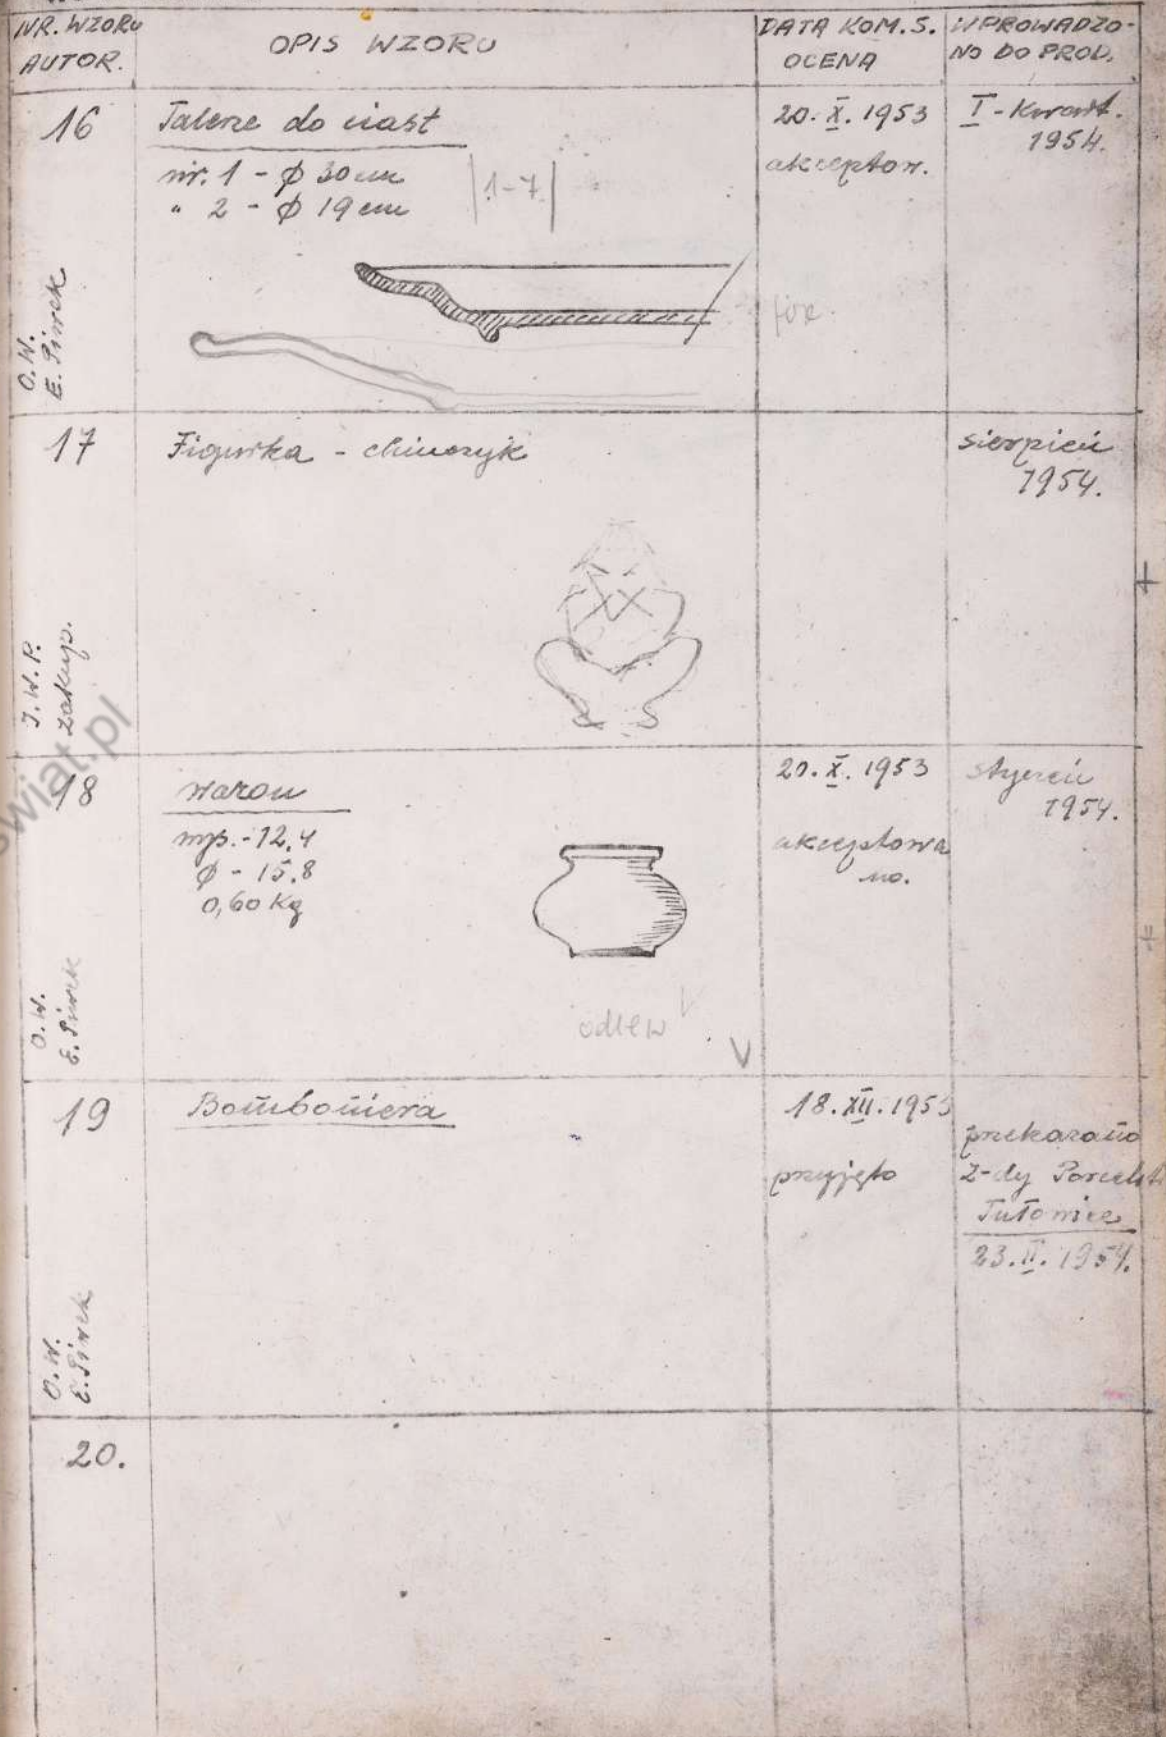 NR. WZORU
AUTOR.
OPIS WZORU
DATA KOM. S.
OCENA
WPROWADZO-
NO DO PROD.
16
Talerze do ciast
nr. 1 - φ 30 cm
" 2 - φ 19 cm
|1-7|
20. X. 1953
akceptow.
I - Kwart.
1954.
O.W.
E. Piwek
17
Figurka - chińczyk
sierpień
1954.
I.W.P.
zakup.
18
wazon
wys. - 12,4
φ - 15.8
0,60 Kg
odlew
V
20. X. 1953
akceptowa
no.
styczeń
1954.
O.W.
E. Piwek
19
Bomboniera
18. XII. 1953
przyjęto
przekazano
Z-dy Porcelit
Tułowice
23. II. 1954.
O.W.
E. Piwek
20.
swiat.pl